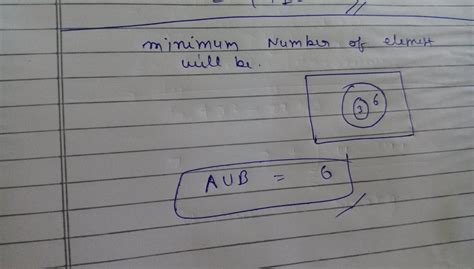 minimum Number of element
will be.
3 6
AUB = 6